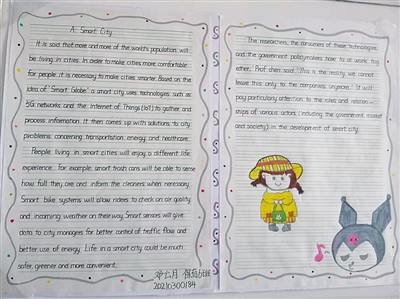 A Smart City
It is said that more and more of the world's population will
be living in cities. In order to make cities more comfortable
for people, it is necessary to make cities smarter. Based on the
idea of "Smart Globe" a smart city uses technologies such as
5G networks and the Internet of Things (IoT) to gather and
process information. It then comes up with solutions to city
problems concerning transportation, energy and healthcare.
People living in smart cities will enjoy a different life
experience. For example, smart trash cans will be able to sense
how full they are and inform the cleaners when necessary.
Smart bike systems will allow riders to check on air quality
and incoming weather on their way. Smart sensors will give
data to city managers for better control of traffic flow and
better use of energy. Life in a smart city could be much
safer, greener and more convenient.
20210300184
The researchers, the consumers of these technologies,
and the government policymakers have to all work tog-
ether. Prof chen said: "This is the reality we cannot
leave this only to the companies anymore." I'll
pay particularly attention to the roles and relation-
ships of various actors (including the government, market
and society) in the development of smart city.